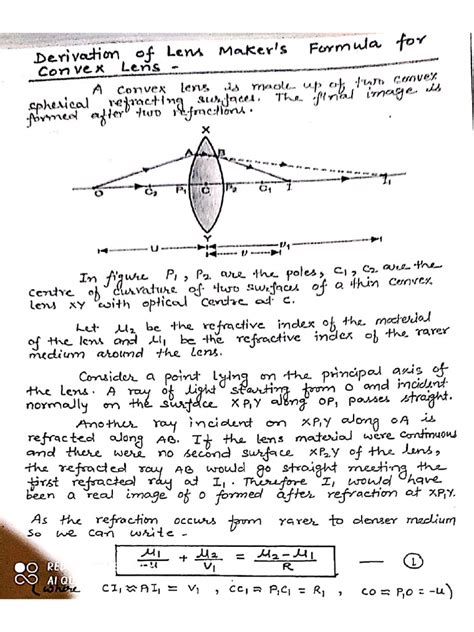 Derivation of Lens Maker's Formula for
Convex Lens -
A convex lens is made up of two convex
spherical refracting surfaces. The final image is
formed after two refractions.
X
A B
O C2 P1 C P2 C1 I I1
Y
u v v1
In figure P1, P2 are the poles, C1, C2 are the
centre of curvature of two surfaces of a thin convex
lens XY with optical centre at C.
Let μ2 be the refractive index of the material
of the lens and μ1 be the refractive index of the rarer
medium around the lens.
Consider a point lying on the principal axis of
the lens. A ray of light starting from O and incident
normally on the surface XP1Y along OP1 passes straight.
Another ray incident on XP1Y along OA is
refracted along AB. If the lens material were continuous
and there were no second surface XP2Y of the lens,
the refracted ray AB would go straight meeting the
first refracted ray at I1. Therefore I1 would have
been a real image of O formed after refraction at XP1Y.
As the refraction occurs from rarer to denser medium
so we can write -
μ1/-u + μ2/v1 = μ2-μ1/R — (1)
(where CI1 ≈ AI1 = v1, CC1 = P1C1 = R1, CO = P1O = -u)
RED
AI QU